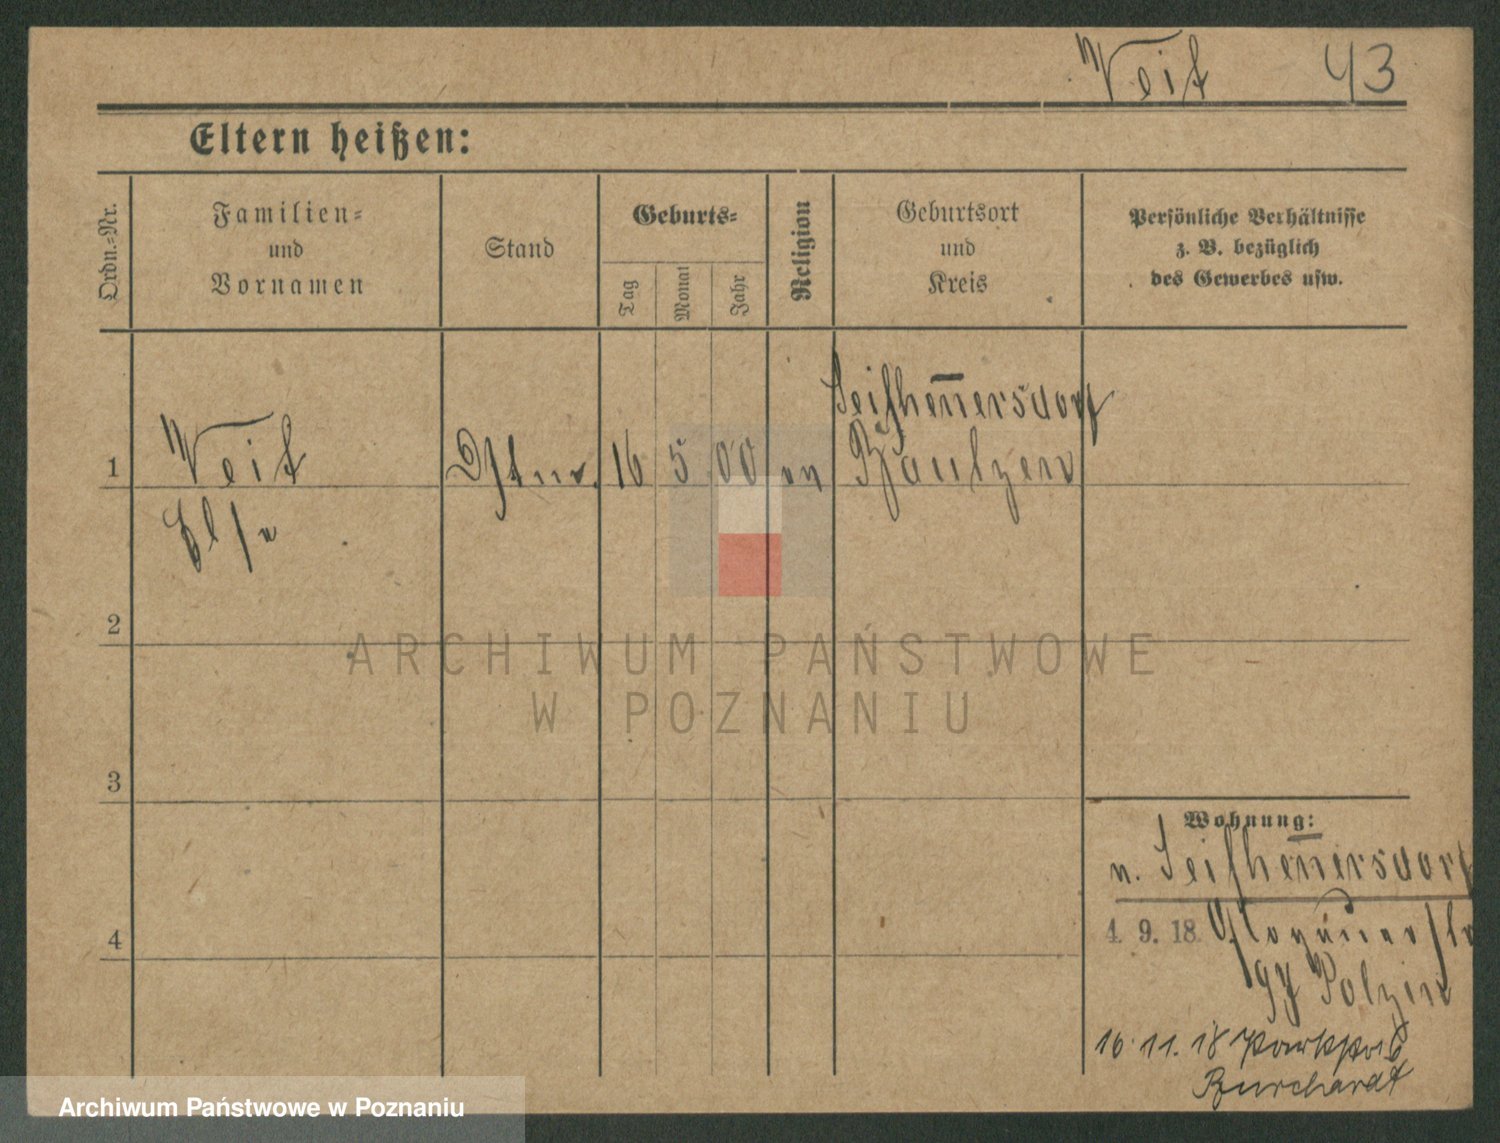 Veit 43
Eltern heißen:
Ordn.=Nr.
Familien=
und
Vornamen
Stand
Geburts=
Tag
Monat
Jahr
Religion
Geburtsort
und
Kreis
Persönliche Verhältnisse
z. B. bezüglich
des Gewerbes usw.
Seifhennersdorf
1 Veit 16 5 00 ev Bautzen
Else
2
3
4
Wohnung:
n. Seifhennersdorf
4. 9. 18. Glogauerstr
Polzin
16. 11. 18
Burchardt
ARCHIWUM PAŃSTWOWE
W POZNANIU
Archiwum Państwowe w Poznaniu